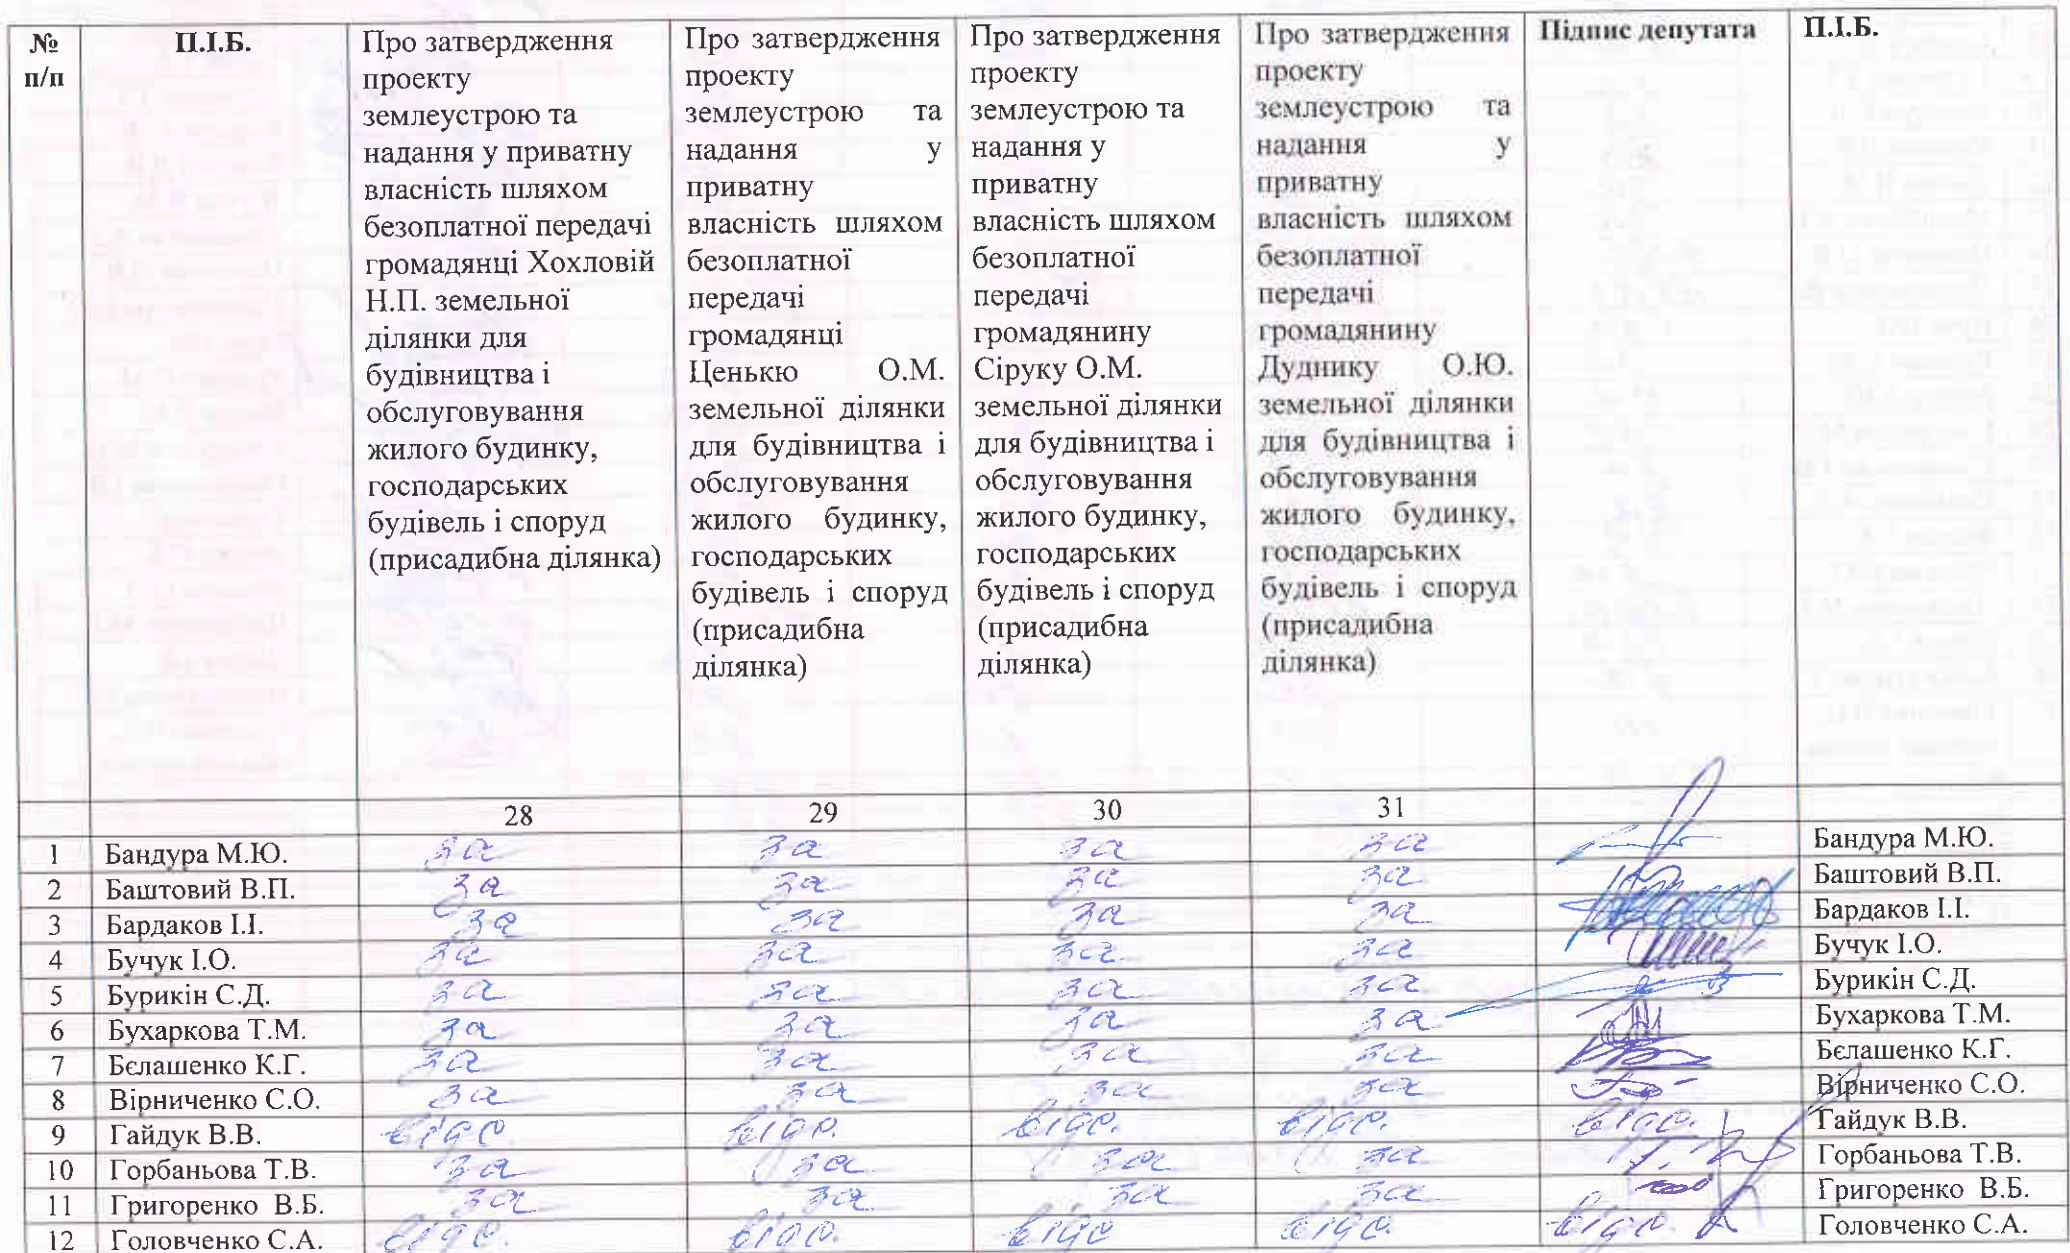 № п/п
П.І.Б.
Про затвердження
проекту
землеустрою та
надання у приватну
власність шляхом
безоплатної передачі
громадянці Хохловій
Н.П. земельної
ділянки для
будівництва і
обслуговування
жилого будинку,
господарських
будівель і споруд
(присадибна ділянка)
Про затвердження
проекту
землеустрою та
надання у
приватну
власність шляхом
безоплатної
передачі
громадянці
Ценькю О.М.
земельної ділянки
для будівництва і
обслуговування
жилого будинку,
господарських
будівель і споруд
(присадибна
ділянка)
Про затвердження
проекту
землеустрою та
надання у
приватну
власність шляхом
безоплатної
передачі
громадянину
Сіруку О.М.
земельної ділянки
для будівництва і
обслуговування
жилого будинку,
господарських
будівель і споруд
(присадибна
ділянка)
Про затвердження
проекту
землеустрою та
надання у
приватну
власність шляхом
безоплатної
передачі
громадянину
Дуднику О.Ю.
земельної ділянки
для будівництва і
обслуговування
жилого будинку,
господарських
будівель і споруд
(присадибна
ділянка)
Підпис депутата
П.І.Б.
28 29 30 31
1 Бандура М.Ю. за за за за Бандура М.Ю.
2 Баштовий В.П. за за за за Баштовий В.П.
3 Бардаков І.І. за за за за Бардаков І.І.
4 Бучук І.О. за за за за Бучук І.О.
5 Бурикін С.Д. за за за за Бурикін С.Д.
6 Бухаркова Т.М. за за за за Бухаркова Т.М.
7 Бєлашенко К.Г. за за за за Бєлашенко К.Г.
8 Вірниченко С.О. за за за за Вірниченко С.О.
9 Гайдук В.В. відс. відс. відс. відс. відс. Гайдук В.В.
10 Горбаньова Т.В. за за за за Горбаньова Т.В.
11 Григоренко В.Б. за за за за Григоренко В.Б.
12 Головченко С.А. відс. відс. відс відс. відс. Головченко С.А.